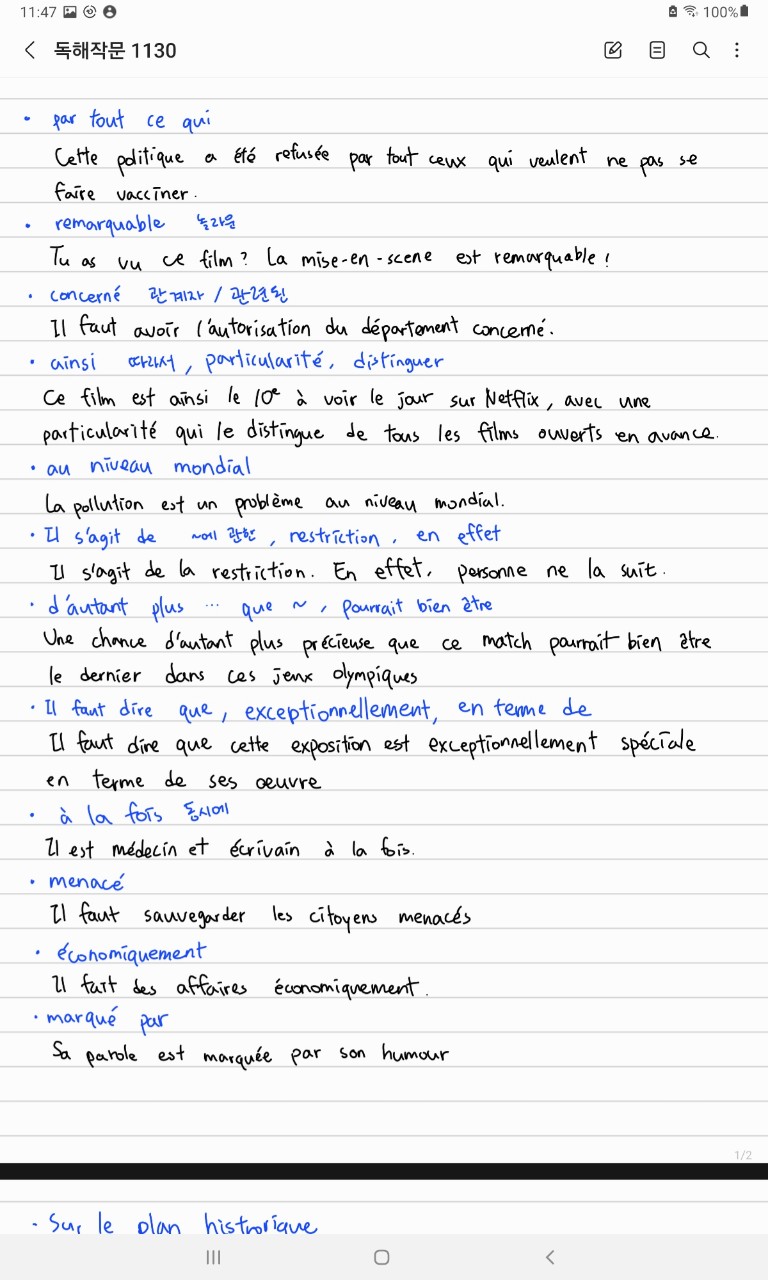 11:47
100%
독해작문 1130
• par tout ce qui
Cette politique a été refusée par tout ceux qui veulent ne pas se
faire vacciner.
• remarquable 놀라운
Tu as vu ce film? La mise-en-scene est remarquable!
• concerné 관계자 / 관련된
Il faut avoir l'autorisation du département concerné.
• ainsi 따라서, particularité, distinguer
Ce film est ainsi le 10e à voir le jour sur Netflix, avec une
particularité qui le distingue de tous les films ouverts en avance.
• au niveau mondial
La pollution est un problème au niveau mondial.
• Il s'agit de ~에 관한, restriction, en effet
Il s'agit de la restriction. En effet, personne ne la suit.
• d'autant plus ... que ~, pourrait bien être
Une chance d'autant plus précieuse que ce match pourrait bien être
le dernier dans ces jeux olympiques
• Il faut dire que, exceptionnellement, en terme de
Il faut dire que cette exposition est exceptionnellement spéciale
en terme de ses œuvre
• à la fois 동시에
Il est médecin et écrivain à la fois.
• menacé
Il faut sauvegarder les citoyens menacés
• économiquement
Il fait des affaires économiquement.
• marqué par
Sa parole est marquée par son humour
1/2
• Sur le plan histrorique